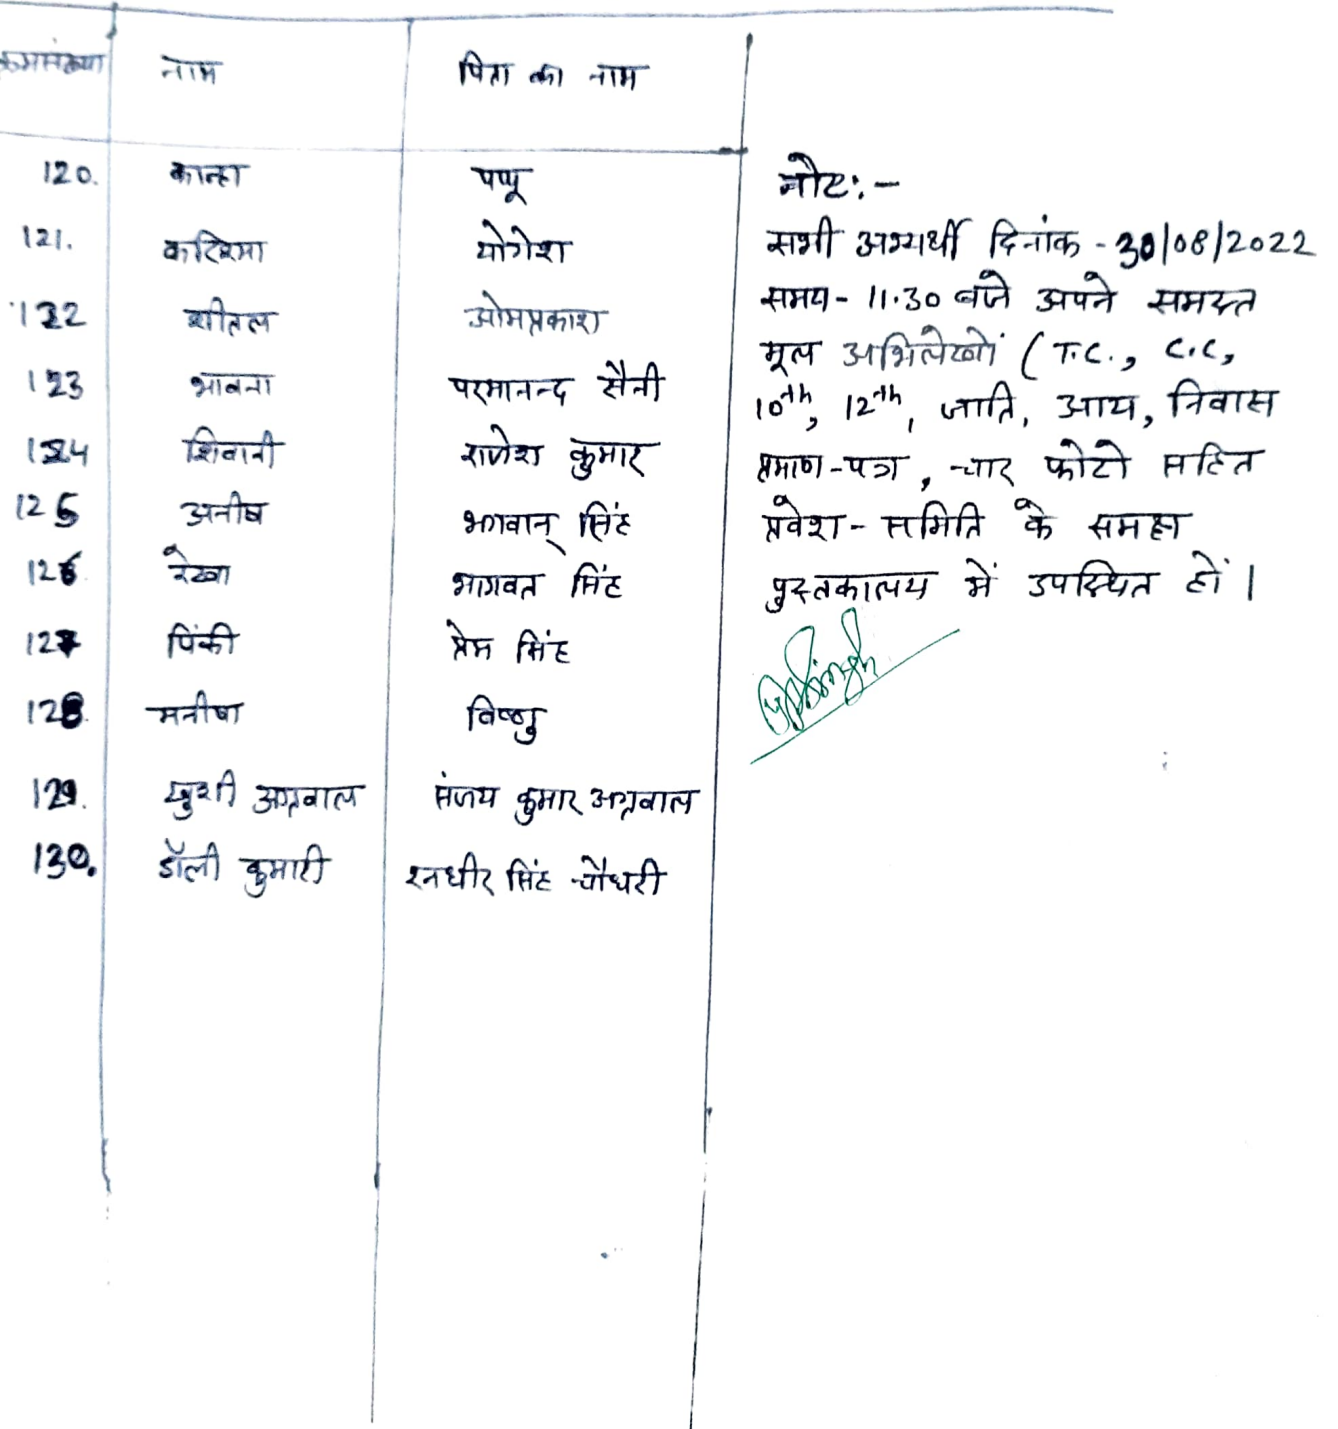 क्रमसंख्या नाम पिता का नाम
120. कान्हा पप्पू
121. करिश्मा योगेश
122 शीतल ओमप्रकाश
123 भावना परमानन्द सैनी
124 शिवानी राजेश कुमार
125 अनीष भगवान् सिंह
126 रेखा भागवत सिंह
127 पिंकी प्रेम सिंह
128. मनीषा विष्णु
129. खुशी अग्रवाल संजय कुमार अग्रवाल
130. डॉली कुमारी रनधीर सिंह चौधरी
नोटः-
सभी अभ्यर्थी दिनांक - 30/08/2022
समय - 11.30 बजे अपने समस्त
मूल अभिलेखों (T.C., C.C,
10th, 12th, जाति, आय, निवास
प्रमाण-पत्र, चार फोटो सहित
प्रवेश - समिति के समक्ष
पुस्तकालय में उपस्थित हों।